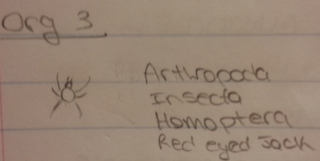 Org 3
Arthropoda
Insecta
Homoptera
Red eyed Jack